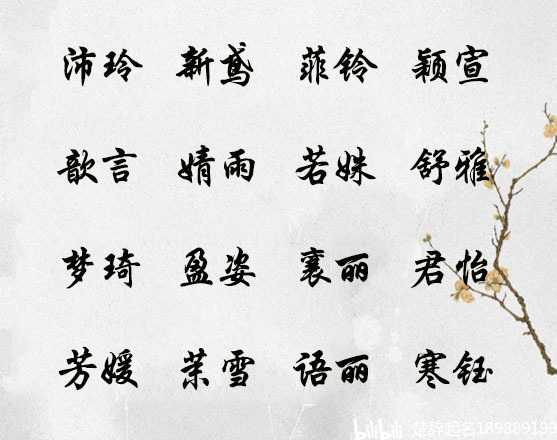 沛玲 新鸢 菲铃 颖宣
歆言 婧雨 若姝 舒雅
梦琦 盈姿 襄丽 君怡
芳媛 茉雪 语丽 寒钰
bilibili 楚辞起名189889199